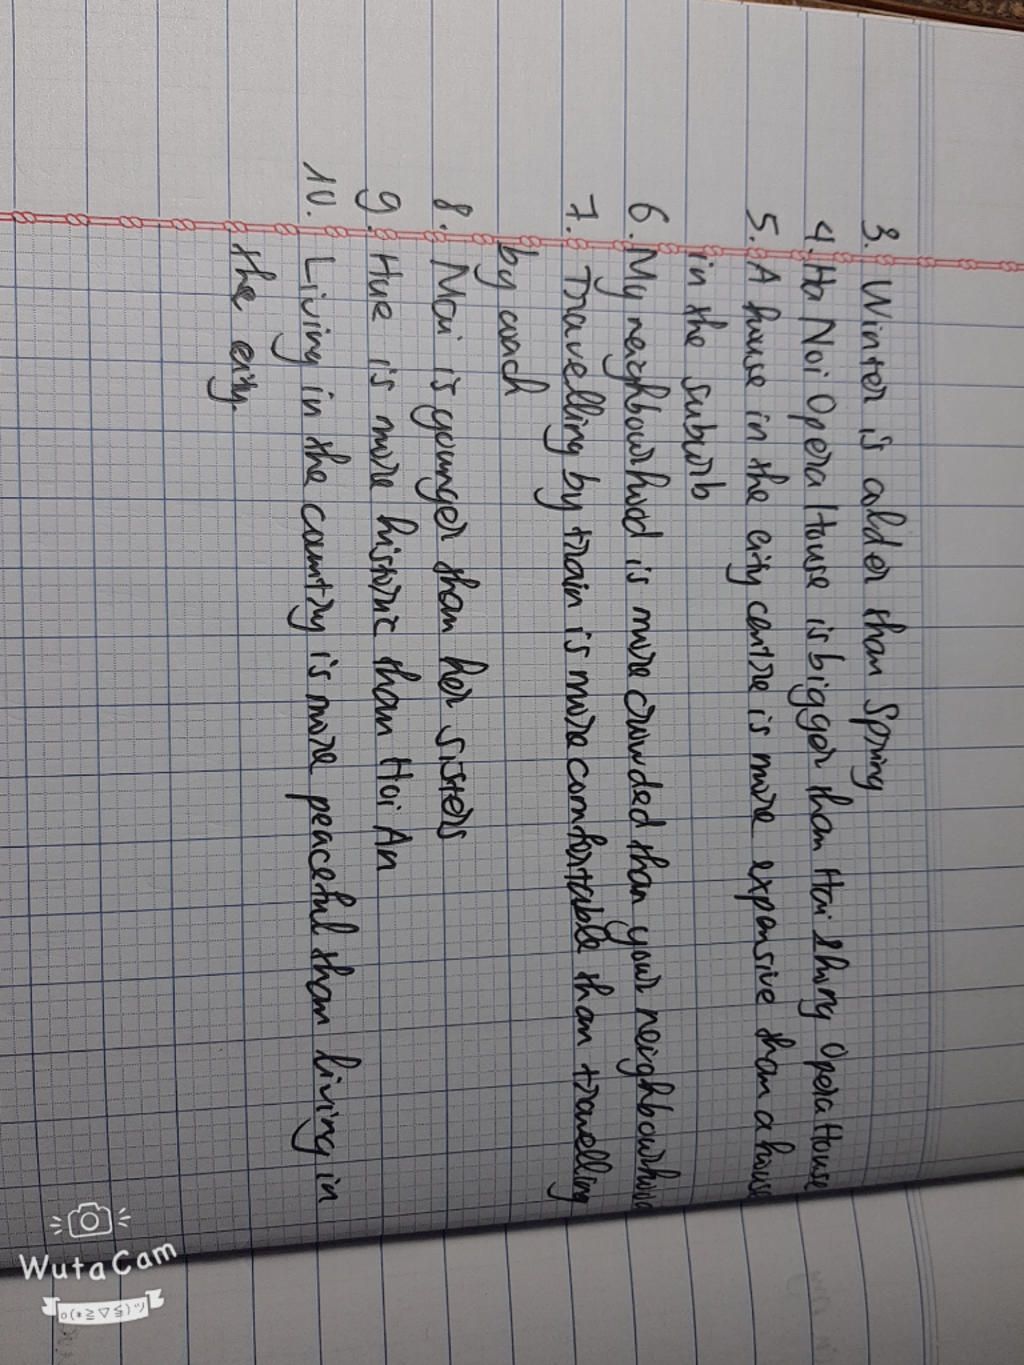 3. Winter is colder than Spring
4. Ha Noi Opera House is bigger than Hai Phong Opera House
5. A house in the city centre is more expensive than a house
in the suburb
6. My neighbourhood is more crowded than your neighbourhood
7. Travelling by train is more comfortable than travelling
by coach
8. Mai is younger than her sisters
9. Hue is more historic than Hoi An
10. Living in the country is more peaceful than living in
the city.
WutaCam